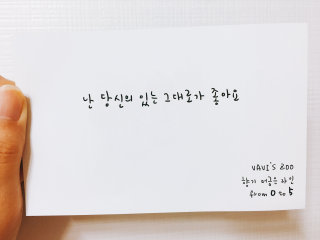 난 당신의 있는 그대로가 좋아요
VAVI'S ZOO
향기 머금은 라인
from 0 to 5